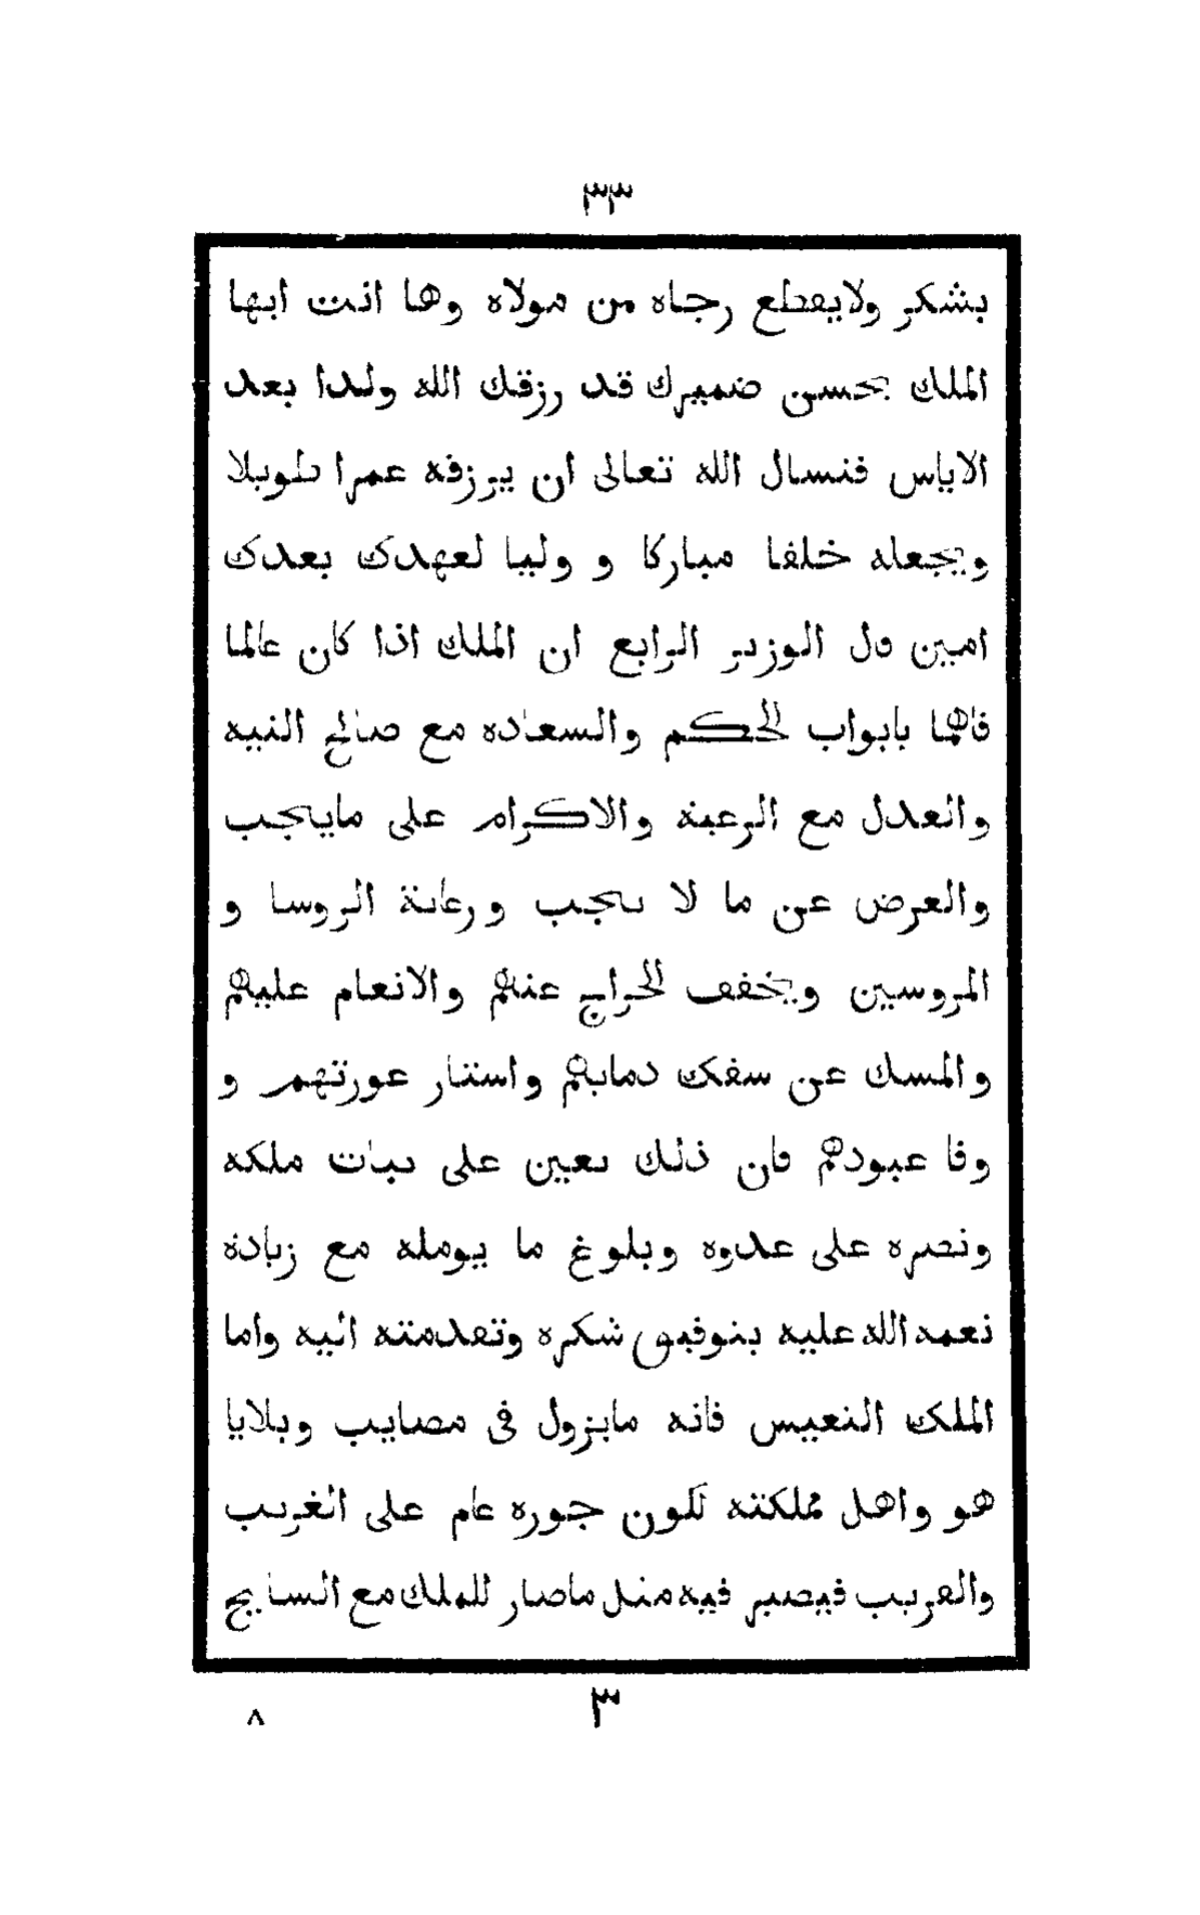 ٣٣
يشكر ولايقطع رجاه من مولاه وها انت ايها
الملك بحسن ضميرك قد رزقك الله ولدا بعد
الاياس فنسال الله تعالى ان يرزقه عمرا طويلا
ويجعله خلفا مباركا و وليا لعهدك بعدك
امين قال الوزير الرابع ان الملك اذا كان عالما
فاهما بابواب الحكم والسعاده مع صالح النيه
والعدل مع الرعية والاكرام على مايجب
والعرض عن ما لا يجب ورعاية الروسا و
المروسين ويخفف الخراج عنهم والانعام عليهم
والمسك عن سفك دمايهم واستتار عورتهم و
وفا عبودهم فان ذلك يعين على ثبات ملكه
ونصره على عدوه وبلوغ ما يومله مع زيادة
نعمه الله عليه بتوفيق شكره وتقدمته اليه واما
الملك التعيس فانه مايزول في مصايب وبلايا
هو واهل مملكته لكون جوره عام على الغريب
والقريب فيصير فيه مثل ماصار للملك مع السايح
٣
٨